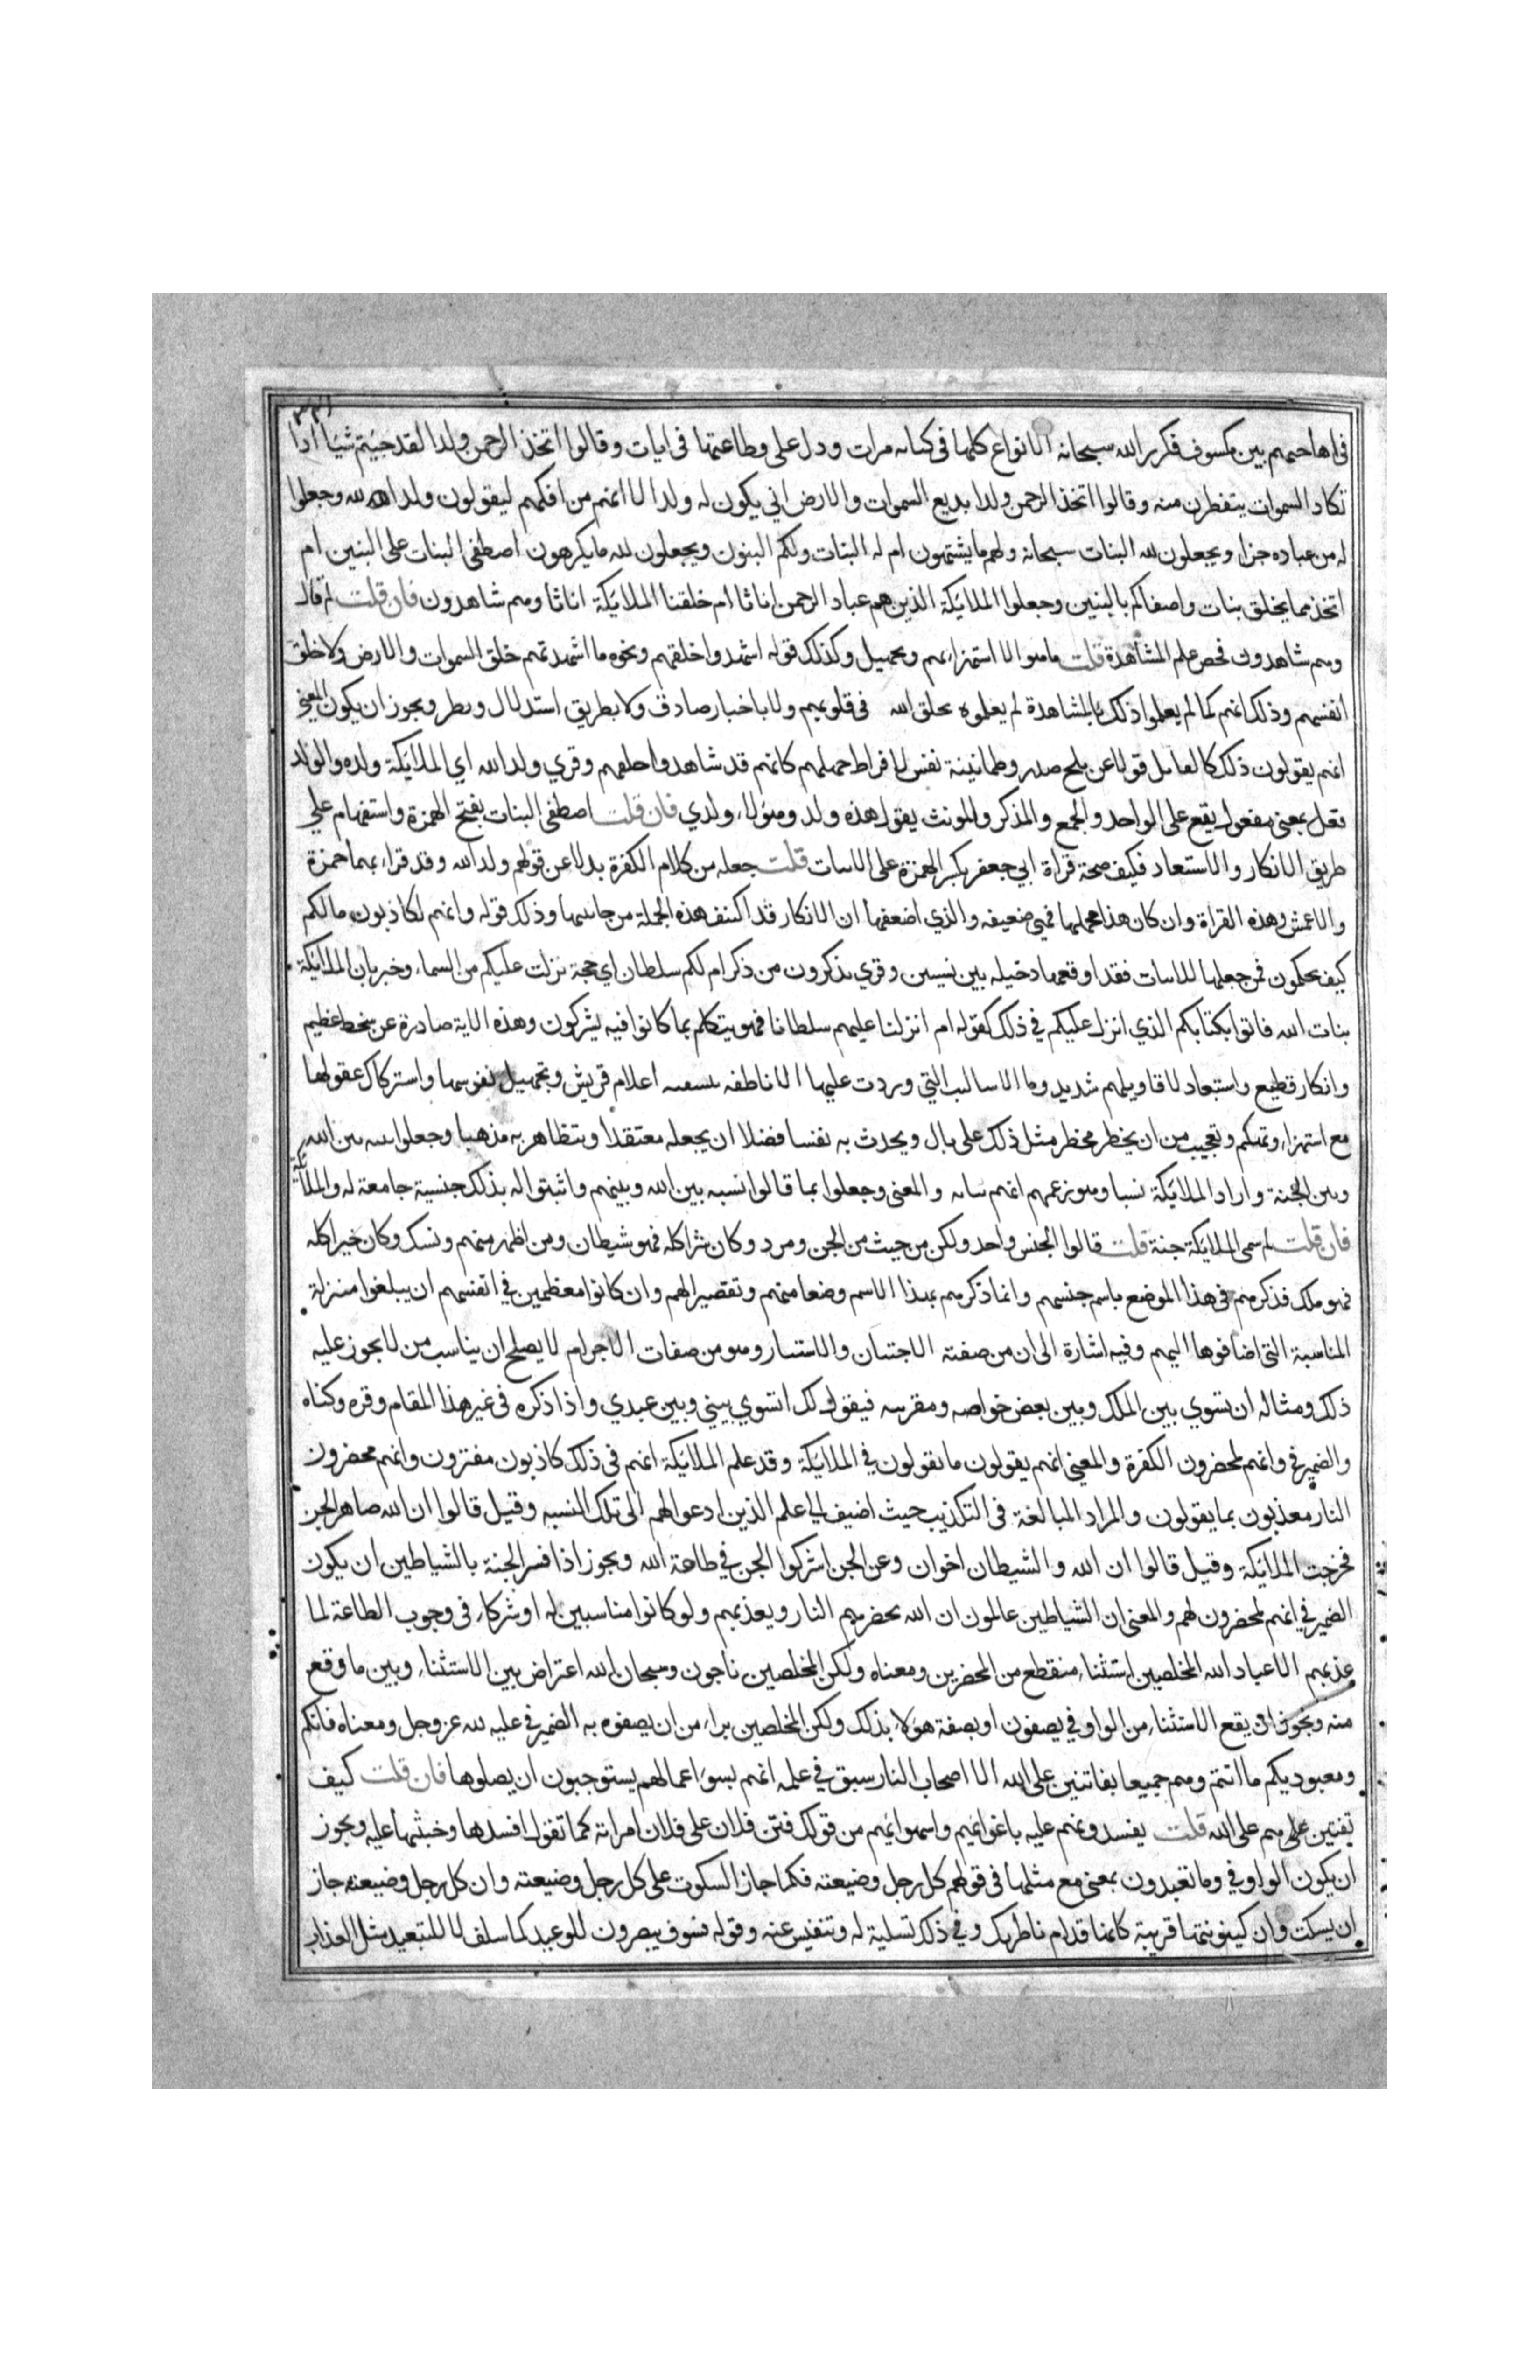 ٣٣١
في اهاجيهم بين مكسوف فكرر الله سبحانه الانواع كلها في كتابه مرات ودل على فظاعتها في ايات وقالوا اتخذ الرحمن ولدا لقد جيتم شيا ادا
تكاد السموات يتفطرن منه وقالوا اتخذ الرحمن ولدا بديع السموات والارض اني يكون له ولد الا انهم من افكهم ليقولون ولد الله وجعلوا
له من عباده جزا ويجعلون لله البنات سبحانه ولهم ما يشتهون ام له البنات ولكم البنون ويجعلون لله ما يكرهون اصطفى البنات على البنين ام
اتخذ مما يخلق بنات واصفاكم بالبنين وجعلوا الملايكة الذين هم عباد الرحمن اناثا ام خلقنا الملايكة اناثا وهم شاهدون فان قلت لم قال
وهم شاهدون فخص علم المشاهدة قلت ما هو الا استهزاء بهم وتجهيل وكذلك قوله اشهدوا خلقهم ونحوه ما اشهدتهم خلق السموات والارض ولا خلق
انفسهم وذلك انهم كما لم يعلموا ذلك بالمشاهدة لم يعلموه بخلق الله في قلوبهم ولا باخبار صادق ولا بطريق استدلال ونظر ويجوز ان يكون المعني
انهم يقولون ذلك كالقايل قولا عن ثلج صدر وطمانينة نفس لافراط جهلهم كانهم قد شاهدوا خلقهم وقري ولد الله اي الملايكة ولده والولد
فعل بمعنى مفعول يقع على الواحد والجمع والمذكر والمونث يقول هذه ولدي وهولاء ولدي فان قلت اصطفى البنات بفتح الهمزة واستفهام علي
طريق الانكار والاستبعاد فكيف صحة قراة ابي جعفر بكسر الهمزة على الاثبات قلت جعله من كلام الكفرة بدلا عن قولهم ولد الله وقد قراء بها حمزة
والاعمش وهذه القراة وان كان هذا محملها فهي ضعيفه والذي اضعفها ان الانكار قد اكتنف هذه الجملة من جانبيها وذلك قوله وانهم لكاذبون مالكم
كيف تحكمون فمن جعلها للاثبات فقد اوقعها دخيله بين نسيبين وقري تذكرون من ذكر ام لكم سلطان اي حجة نزلت عليكم من السماء وخبر بان الملايكة
بنات الله فاتوا بكتابكم الذي انزل عليكم في ذلك كقوله ام انزلنا عليهم سلطانا فهو يتكلم بما كانوا فيه يشركون وهذه الاية صادرة عن سخط عظيم
وانكار فظيع واستبعاد لاقاويلهم شديد وما الاساليب التي وردت عليها الا ناطقه بتسفيه احلام قريش وتجهيل نفوسها واستركاك عقولها
مع استهزاء وتهكم وتعجيب من ان يخطر مخطر مثل ذلك على بال ويحدث به نفسا فضلا ان يجعله معتقدا ويتظاهر به مذهبا وجعلوا بينه بين الله
وبين الجنة واراد الملايكة نسبا وهو زعمهم انهم بناته والمعنى وجعلوا بما قالوا نسبه بين الله وبينهم واثبتوا له بذلك جنسية جامعة له والملايكة
فان قلت لم سمى الملايكة جنة قلت قالوا الجنس واحد ولكن من خبث من الجن ومرد وكان شرا كله فهو شيطان ومن اطهر منهم ونسك وكان خيرا كله
فهو ملك فذكرهم في هذا الموضع باسم جنسهم وانما ذكرهم بهذا الاسم وضعا منهم وتقصيرا لهم وان كانوا معظمين في انفسهم ان يبلغوا منزلة
المناسبة التي اضافوها اليهم وفيه اشارة الى ان من صفته الاجتنان والاستتار وهو من صفات الاجرام لا يصلح ان يناسب من لا يجوز عليه
ذلك ومثاله ان تسوي بين الملك وبين بعض خواصه ومقربيه فيقول لك اتسوي بيني وبين عبدي واذا ذكره في غير هذا المقام وقره وكناه
والضمير في وانهم لمحضرون الكفرة والمعني انهم يقولون ما يقولون في الملايكة وقد علم الملايكة انهم في ذلك كاذبون مفترون وانهم محضرون
النار معذبون بما يقولون والمراد المبالغة في التكذيب حيث اضيف الي علم الذين ادعوا لهم الى تلك النسبه وقيل قالوا ان الله صاهر الجن
فخرجت الملايكة وقيل قالوا ان الله والشيطان اخوان وعن الجن اشركوا الجن في طاعة الله ويجوز اذا فسر الجنة بالشياطين ان يكون
الضمير في انهم لمحضرون لهم والمعنى ان الشياطين عالمون ان الله يحضرهم النار ويعذبهم ولو كانوا مناسبين له او شركاء في وجوب الطاعة لما
عذبهم الا عباد الله المخلصين استثناء منقطع من المحضرين ومعناه ولكن المخلصين ناجون وسبحان الله اعتراض بين الاستثناء وبين ما وقع
منه ويجوز ان يقع الاستثناء من الواو في يصفون او يصفه هولاء بذلك ولكن المخلصين براء من ان يصفوه به الضمير في عليه لله عز وجل ومعناه فانكم
ومعبوديكم ما انتم وهم جميعا بفاتنين على الله الا اصحاب النار سبق في علمه انهم بسوء اعمالهم يستوجبون ان يصلوها فان قلت كيف
يفتنين علي هم على الله قلت يفسدونهم عليه باغوائهم واستهوائهم من قولك فتن فلان على فلان امراته كما تقول افسدها وخبثها عليه ويجوز
ان يكون الواو في وما تعبدون بمعنى مع مثلها في قولهم كل رجل وضيعته فكما جاز السكوت على كل رجل وضيعته وان كل رجل وضيعته جاز
ان يسكت وان كينونتها قريبة كانها قدام ناظريك وفي ذلك تسلية له وتنفيس عنه وقوله فسوف يبصرون للوعيد كما سلف لا للتبعيد مثل العذاب